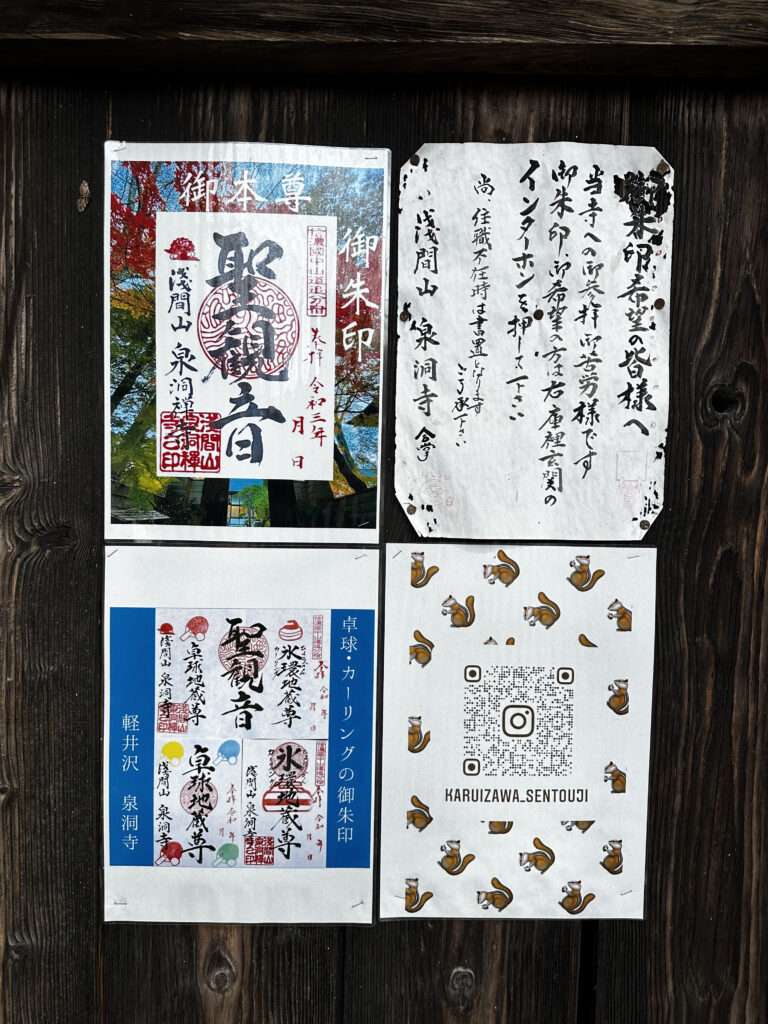 御本尊
御朱印
信濃國中山道追分宿
奉拝 令和三年
月 日
聖観音
浅間山 泉洞禅寺
御朱印希望の皆様へ
当寺への御参拝御苦労様です
御朱印御希望の方は右庫裡玄関の
インターホンを押して下さい
尚、住職不在時は書置となります
ご了承下さい
浅間山 泉洞寺
卓球・カーリングの御朱印
奉拝 令和 年
月 日
氷環地蔵尊
カーリング
聖観音
卓球地蔵尊
浅間山 泉洞寺
奉拝 令和 年
月 日
氷環地蔵尊
浅間山 泉洞寺
奉拝 令和 年
月 日
卓球地蔵尊
浅間山 泉洞寺
軽井沢 泉洞寺
KARUIZAWA_SENTOUJI